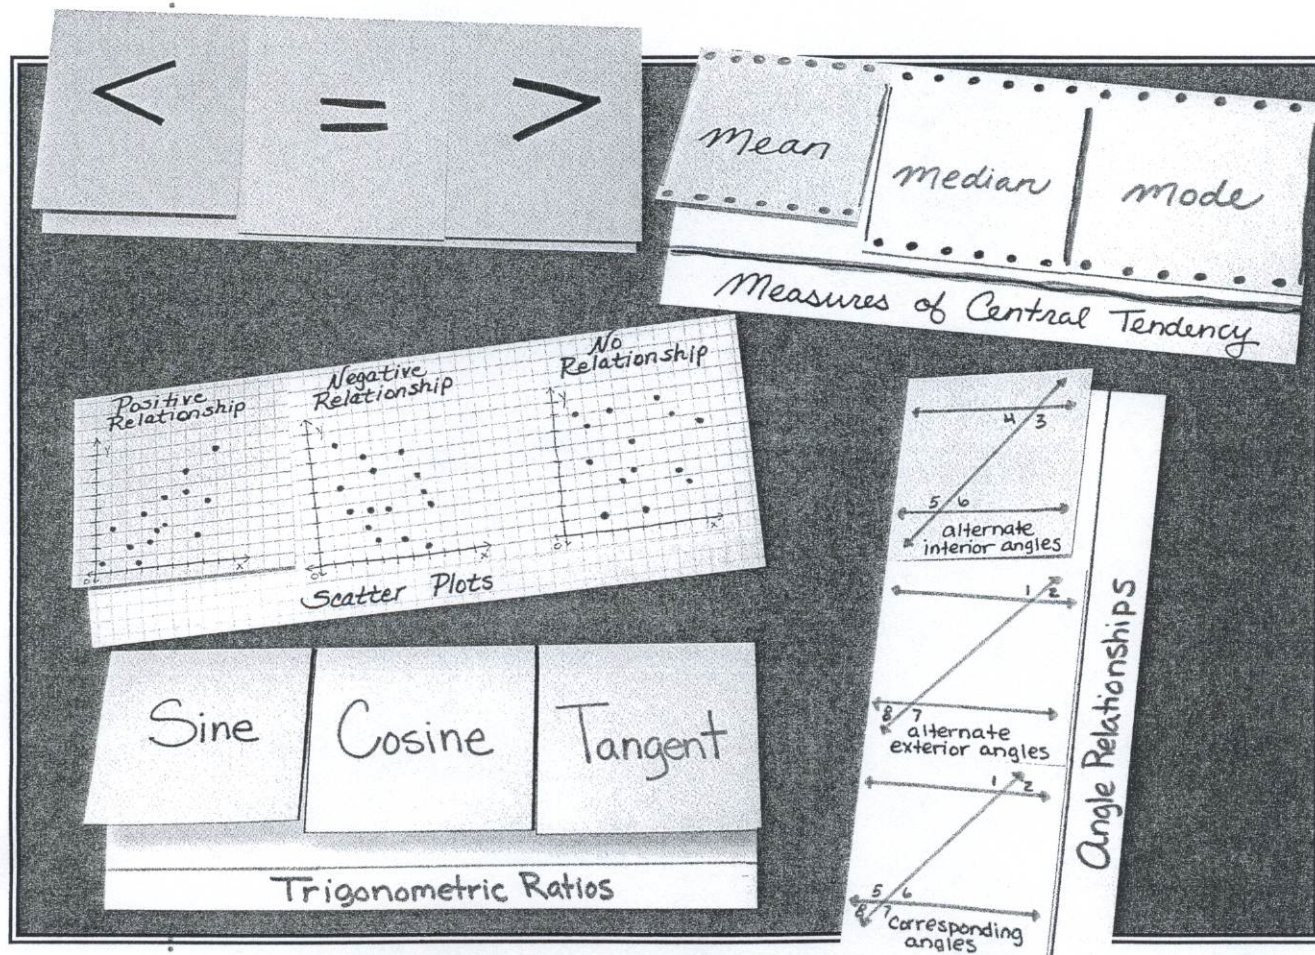 < = >
mean median mode
Measures of Central Tendency
Positive
Relationship
Y
O
X
Negative
Relationship
Y
O
X
No
Relationship
Y
O
X
Scatter Plots
Sine Cosine Tangent
Trigonometric Ratios
4 3
5 6
alternate
interior angles
1 2
8 7
alternate
exterior angles
1 2
5 6
8 7
corresponding
angles
Angle Relationships